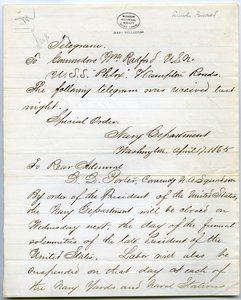 Lincoln Funeral
NAVY COLLECTION
Telegram.
To Commodore Wm Radford U.S.N.
U.S.S. "Phlox," Hampton Roads.
The following telegram was received last
night.
Special Order.
Navy Department
Washington, April 17, 1865
To Rear Admiral
D. D. Porter, Comndg N.A. Squadron
By order of the President of the United States,
the Navy Department will be closed on
Wednesday next, the day of the funeral
solemnities of the late President of the
United States. Labor will also be
suspended on that day at each of
the Navy Yards and Naval Stations